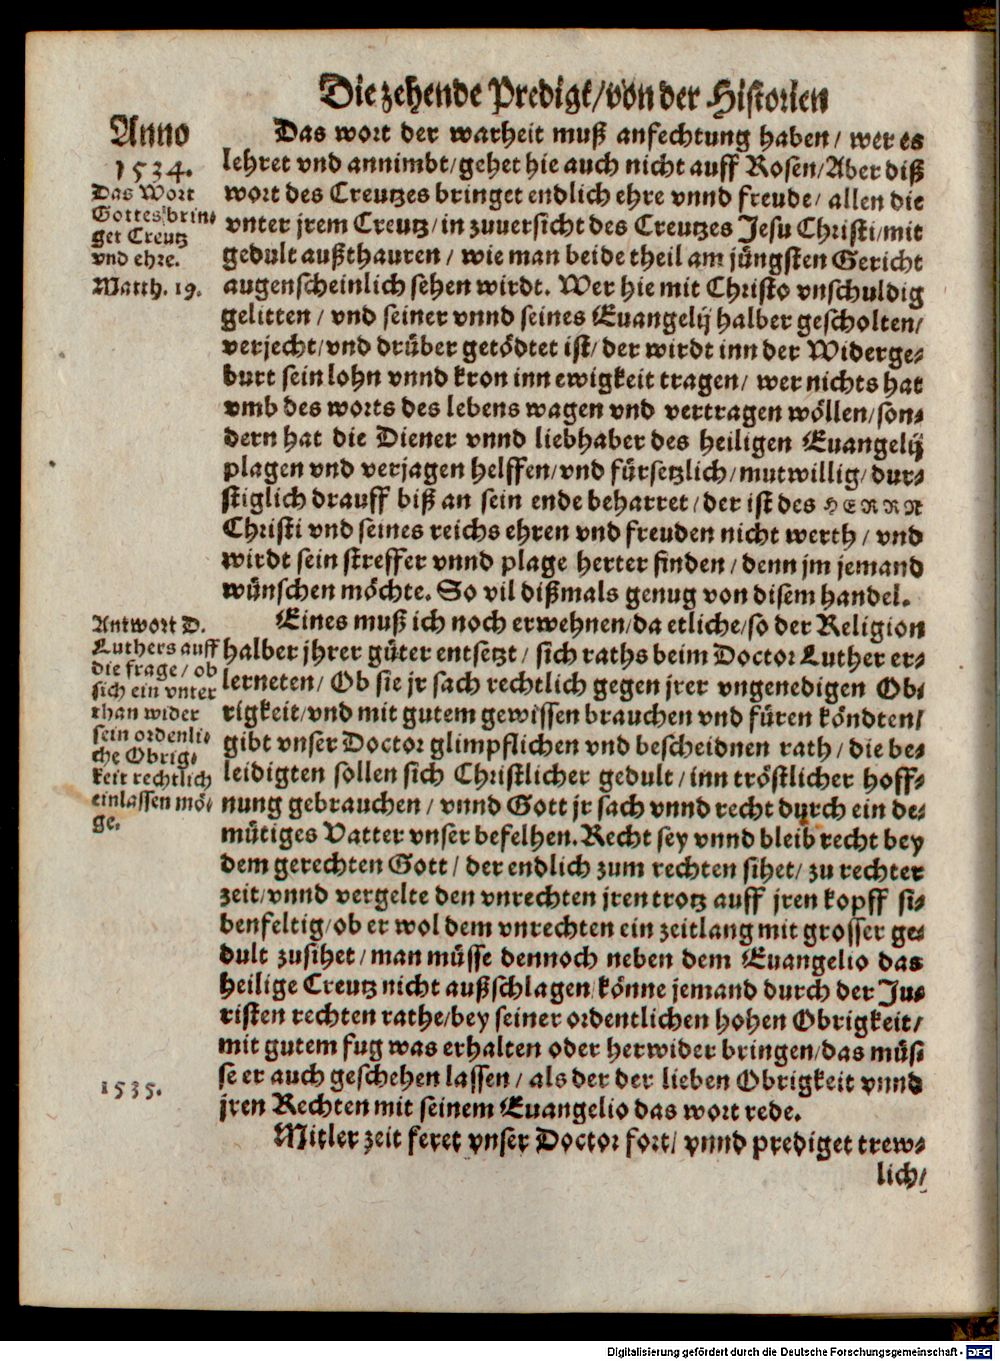 Die zehende Predigt/von der Historien
Anno
1534.
Das Wort
Gottes brin⸗
get Creutz
vnd ehre.
Matth. 19.
Das wort der warheit muß anfechtung haben/ wer es
lehret vnd annimbt/gehet hie auch nicht auff Rosen/Aber diß
wort des Creutzes bringet endlich ehre vnnd freude/ allen die
vnter jrem Creutz/in zuuersicht des Creutzes Jesu Christi/mit
gedult außthauren/ wie man beide theil am jüngsten Gericht
augenscheinlich sehen wirdt. Wer hie mit Christo vnschuldig
gelitten/ vnd seiner vnnd seines Euangelij halber gescholten/
verjecht/vnd drüber getödtet ist/ der wirdt inn der Widerge⸗
burt sein lohn vnnd kron inn ewigkeit tragen/ wer nichts hat
vmb des worts des lebens wagen vnd vertragen wöllen/son⸗
dern hat die Diener vnnd liebhaber des heiligen Euangelij
plagen vnd verjagen helffen/vnd fürsetzlich/mutwillig/dur⸗
stiglich drauff biß an sein ende beharret/der ist des HERRN
Christi vnd seines reichs ehren vnd freuden nicht werth/ vnd
wirdt sein streffer vnnd plage herter finden/denn jm jemand
wünschen möchte. So vil dißmals genug von disem handel.
Antwort D.
Luthers auff
die frage/ ob
sich ein vnter
than wider
sein ordenli⸗
che Obrig⸗
keit rechtlich
einlassen mö⸗
ge.
Eines muß ich noch erwehnen/da etliche/so der Religion
halber jhrer güter entsetzt/ sich raths beim Doctor Luther er⸗
lerneten/ Ob sie jr sach rechtlich gegen jrer vngenedigen Ob⸗
rigkeit/vnd mit gutem gewissen brauchen vnd füren köndten/
gibt vnser Doctor glimpflichen vnd bescheidnen rath/die be⸗
leidigten sollen sich Christlicher gedult/inn tröstlicher hoff⸗
nung gebrauchen/ vnnd Gott jr sach vnnd recht durch ein de⸗
mütiges Vatter vnser befelhen. Recht sey vnnd bleib recht bey
dem gerechten Gott/ der endlich zum rechten sihet/ zu rechter
zeit/vnnd vergelte den vnrechten jren trotz auff jren kopff si⸗
benfeltig/ob er wol dem vnrechten ein zeitlang mit grosser ge⸗
dult zusihet/man müsse dennoch neben dem Euangelio das
heilige Creutz nicht außschlagen/könne jemand durch der Ju⸗
risten rechten rathe/bey seiner ordentlichen hohen Obrigkeit/
mit gutem fug was erhalten oder herwider bringen/das müs⸗
se er auch geschehen lassen/ als der der lieben Obrigkeit vnnd
jren Rechten mit seinem Euangelio das wort rede.
1535.
Mitler zeit feret vnser Doctor fort/ vnnd prediget trew⸗
lich/
Digitalisierung gefördert durch die Deutsche Forschungsgemeinschaft - DFG